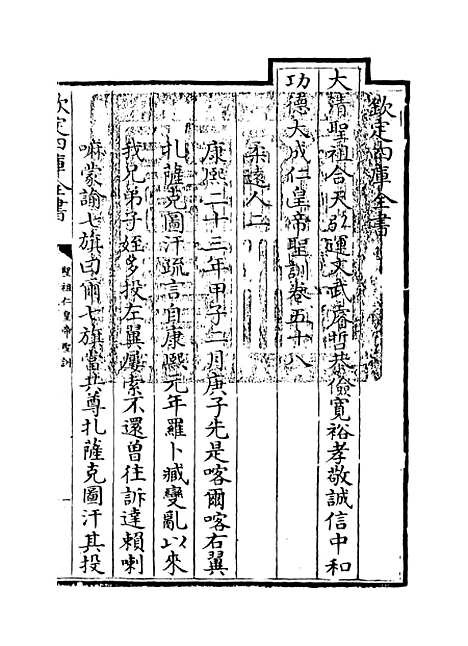 欽定四庫全書
大清聖祖合天弘運文武睿哲恭儉寬裕孝敬誠信中和
功德大成仁皇帝聖訓卷五十八
柔遠人二
康熙二十三年甲子二月庚子先是喀爾喀右翼
扎薩克圖汗疏言自康熙元年羅卜臧變亂以來
我兄弟子姪多投左翼屢索不還曾往訴達賴喇
嘛蒙諭七旗曰爾七旗當共尊扎薩克圖汗其投
欽定四庫全書
聖祖仁皇帝聖訓
一